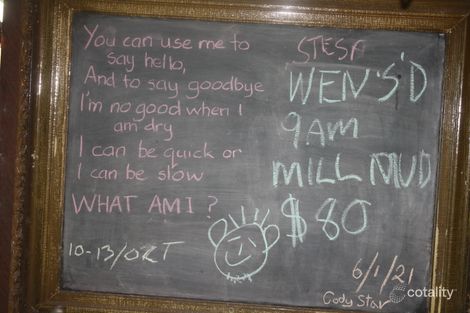 You can use me to
say hello,
And to say goodbye
I'm no good when I
am dry
I can be quick or
I can be slow
WHAT AM I?
10-13/OKT
STESA
WEN'S'D
9AM
MILL MUD
$80
6/1/21
Cody Star
cotality